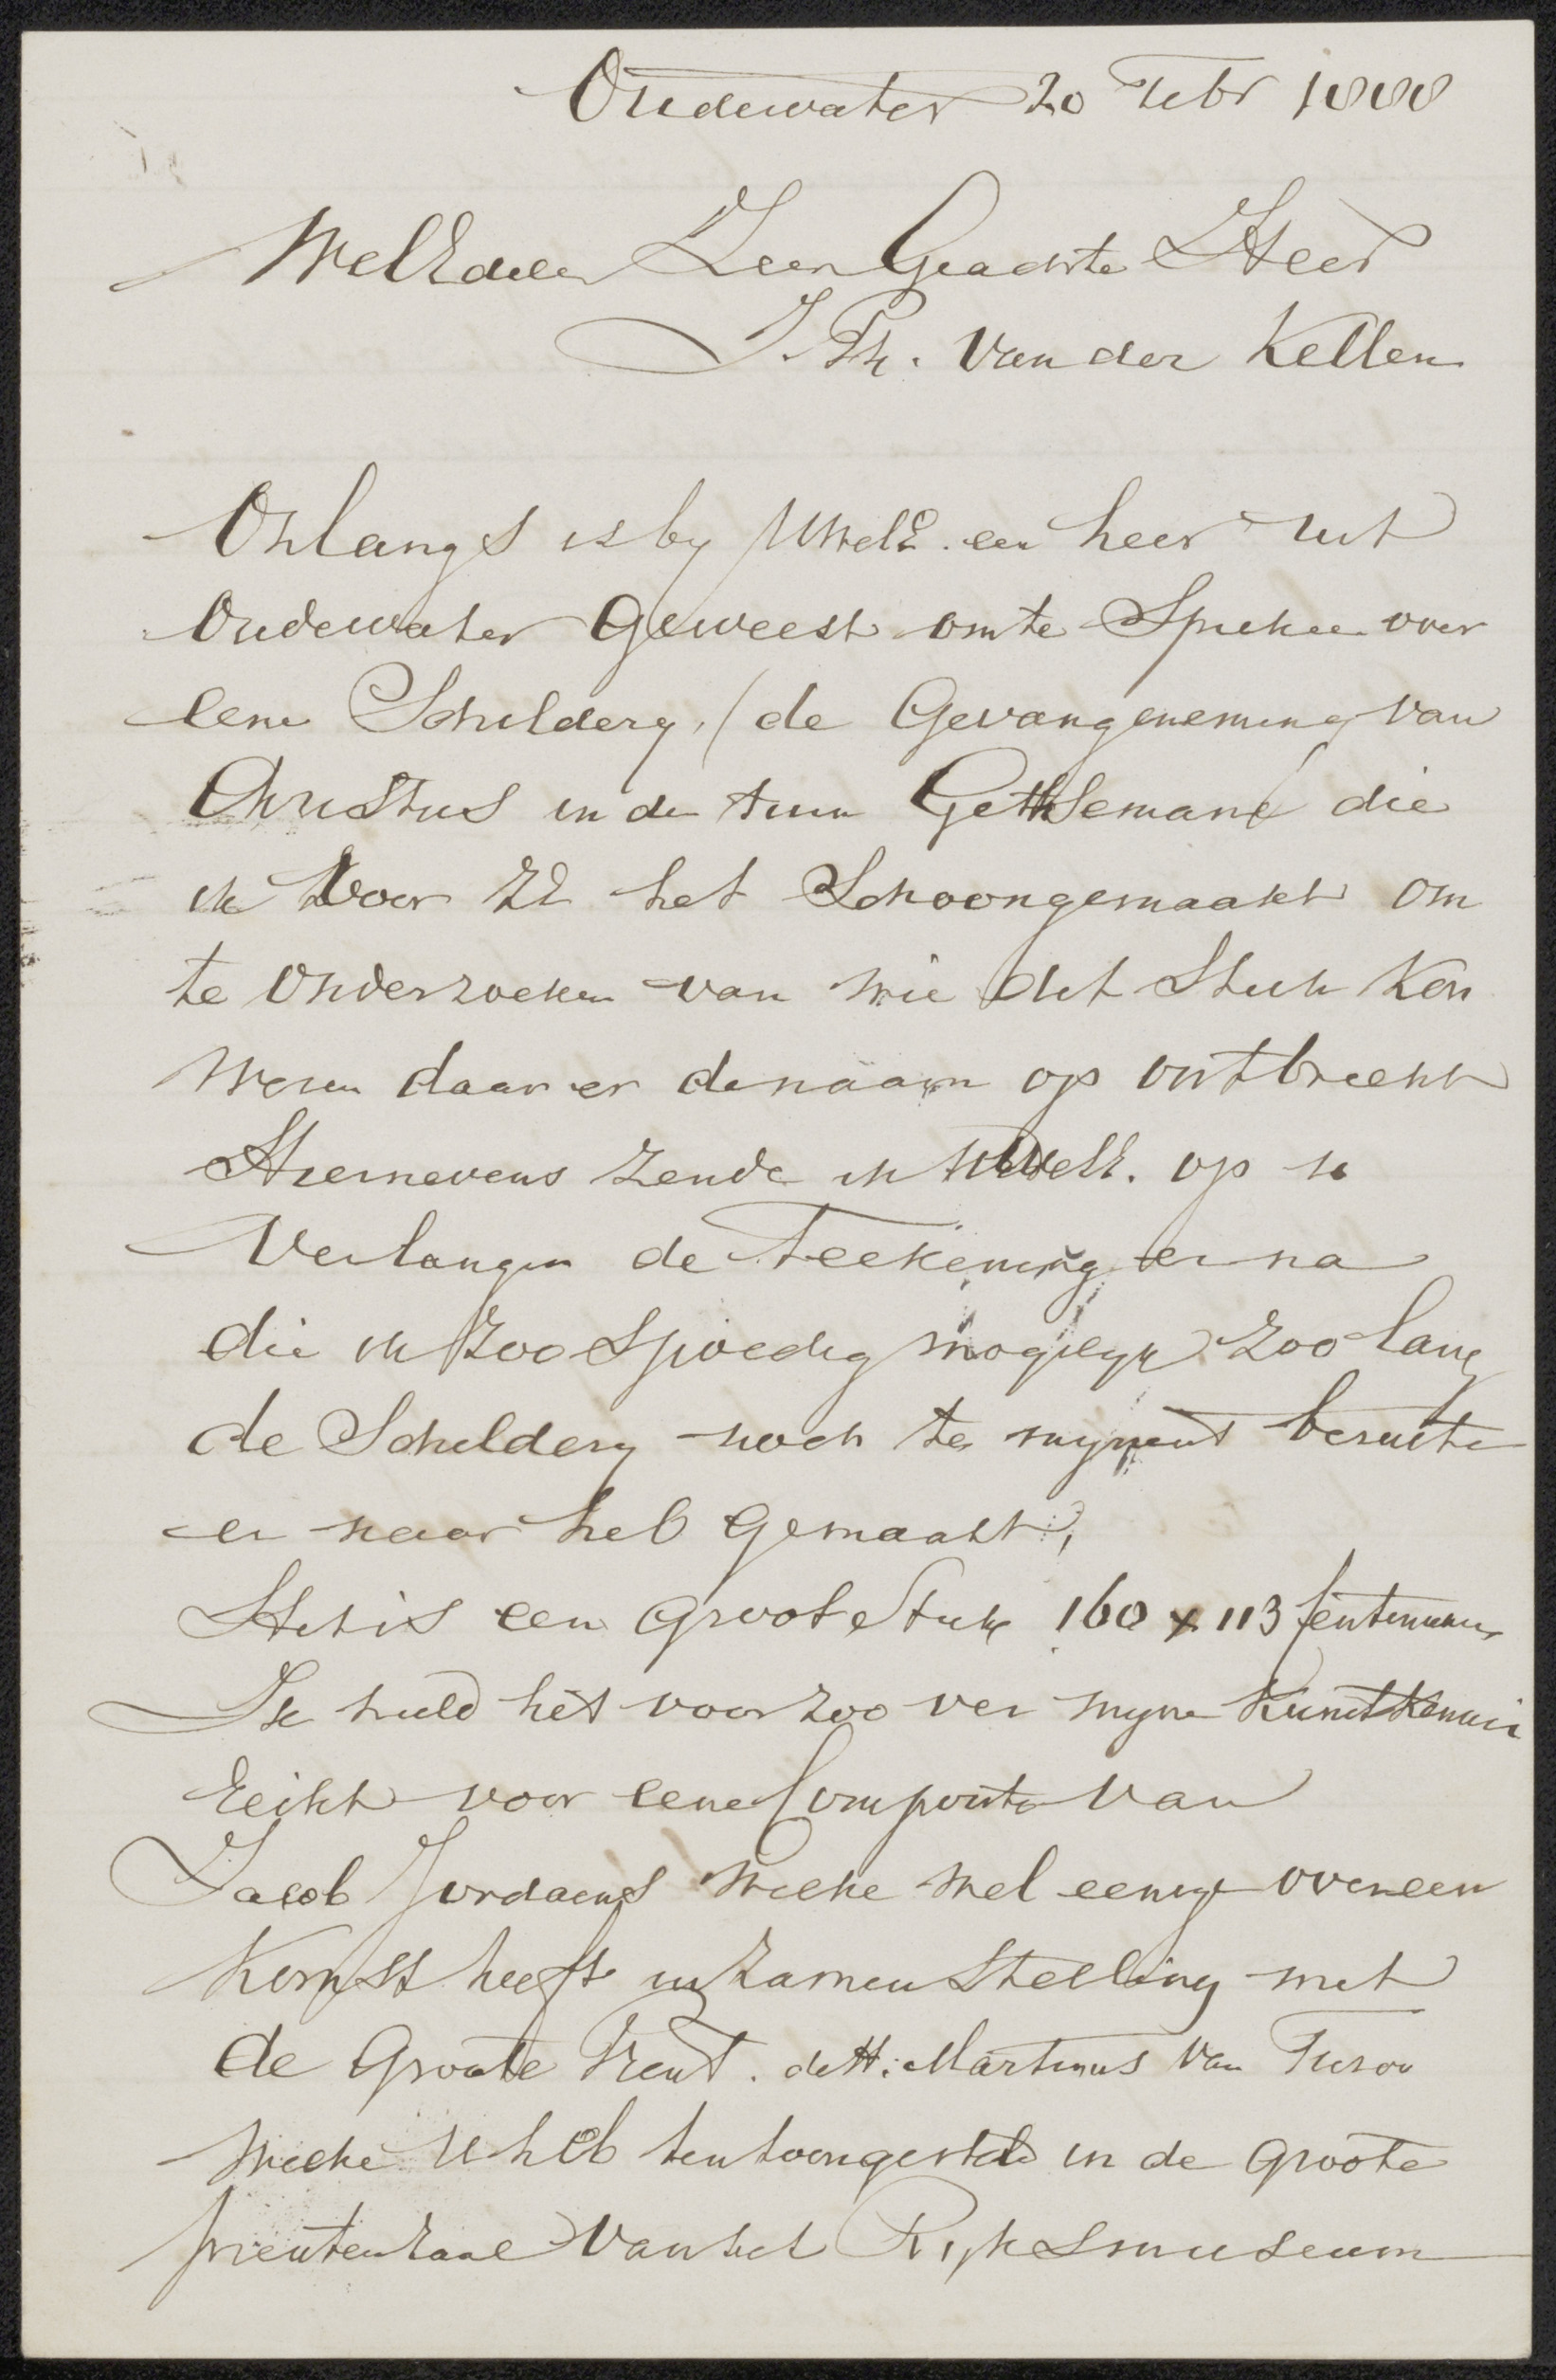 Oudewater 20 Febr 1888
WelEdelen Zeer Geachte Heer
J. Ph. van der Kellen
Onlangs is by UWelE. een heer uit
Oudewater Geweest om te Spreken over
eene Schildery, (de Gevangeneming van
Christus in den tuin Gethsemané die
ik voor ZE heb Schoongemaakt om
te Onderzoeken van wie dit Stuk Kon
Wezen daar er de naam op ontbreekt
Hiernevens Zende ik UWelE. op u
Verlangen de Teekening er na
die ik zoo Spoedig mogelyk zoo lang
de Schildery noch te mynent berustte
er naar heb Gemaakt,
Het is een Groot Stuk 160 x 113 Centimeter
Ik hield het voor zoo ver myne Kunstkennis
Reikt voor eene Compositie van
Jacob Jordaens Welke wel eenige overeen
Komst heeft in Zamenstelling met
de Groote Prent. de H. Martinus van Turon
Welke U heb tentoongesteld in de Groote
prentenzaal van het Ryksmuseum